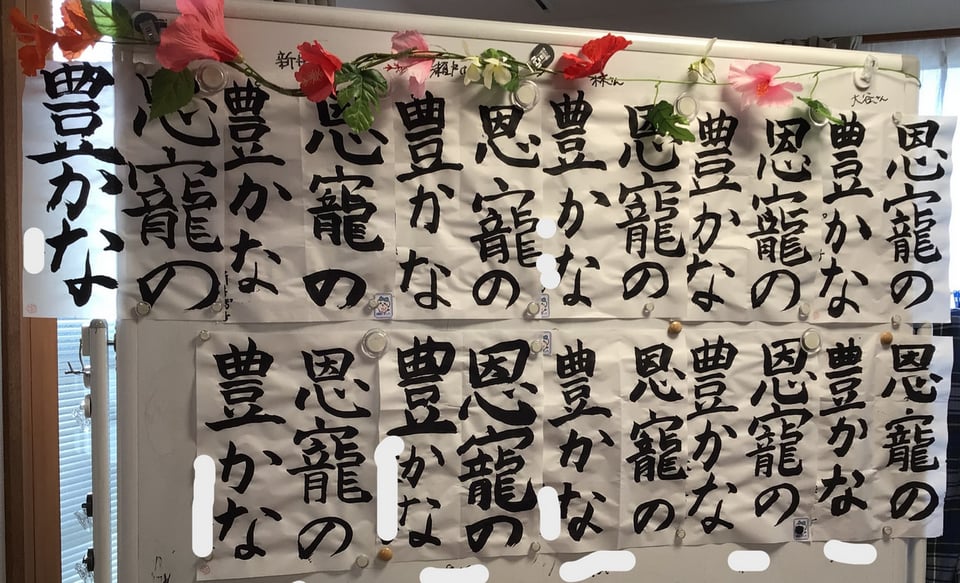 大谷さん
恩寵の
豊かな
恩寵の
豊かな
恩寵の
豊かな
恩寵の
豊かな
恩寵の
豊かな
恩寵の
豊かな
恩寵の
豊かな
恩寵の
豊かな
恩寵の
豊かな
恩寵の
豊かな
恩寵の
豊かな